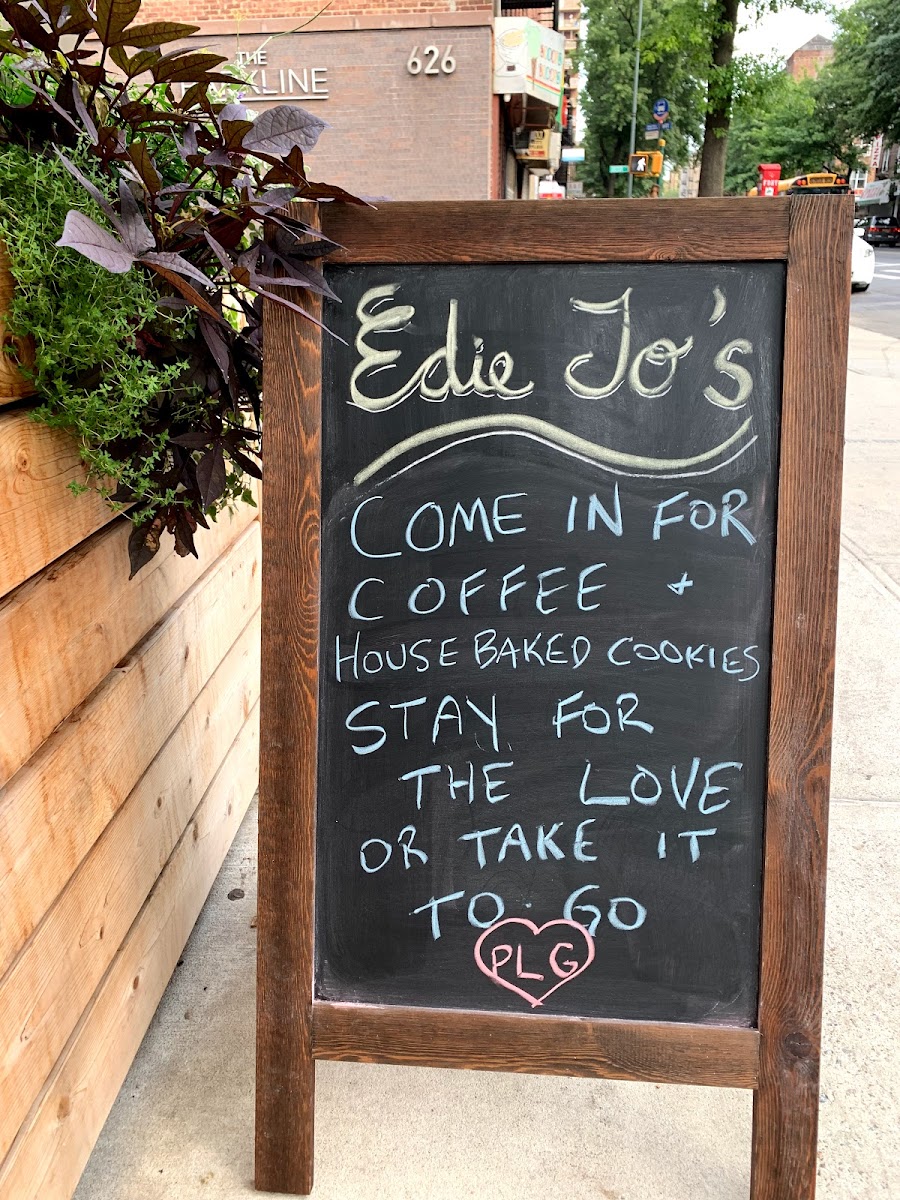 THE
PARKLINE
626
Edie Jo's
COME IN FOR
COFFEE +
HOUSE BAKED COOKIES
STAY FOR
THE LOVE
OR TAKE IT
TO GO
PLG